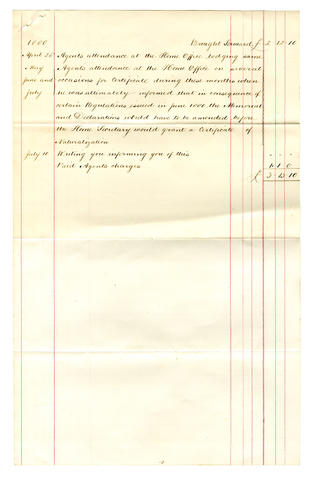 Brought forward £ 2 12 10
April 25 Agents attendance at the Home Office lodging same
May Agents attendance at the Home Office on several
June and occasions for Certificate during these months when
July he was ultimately informed that in consequence of
certain Regulations issued in June the Memorial
and Declarations would have to be amended before
the Home Secretary would grant a Certificate of
Naturalization
July 10 Writing you informing you of this
Paid Agents charges 1 1 0
£ 3 13 10